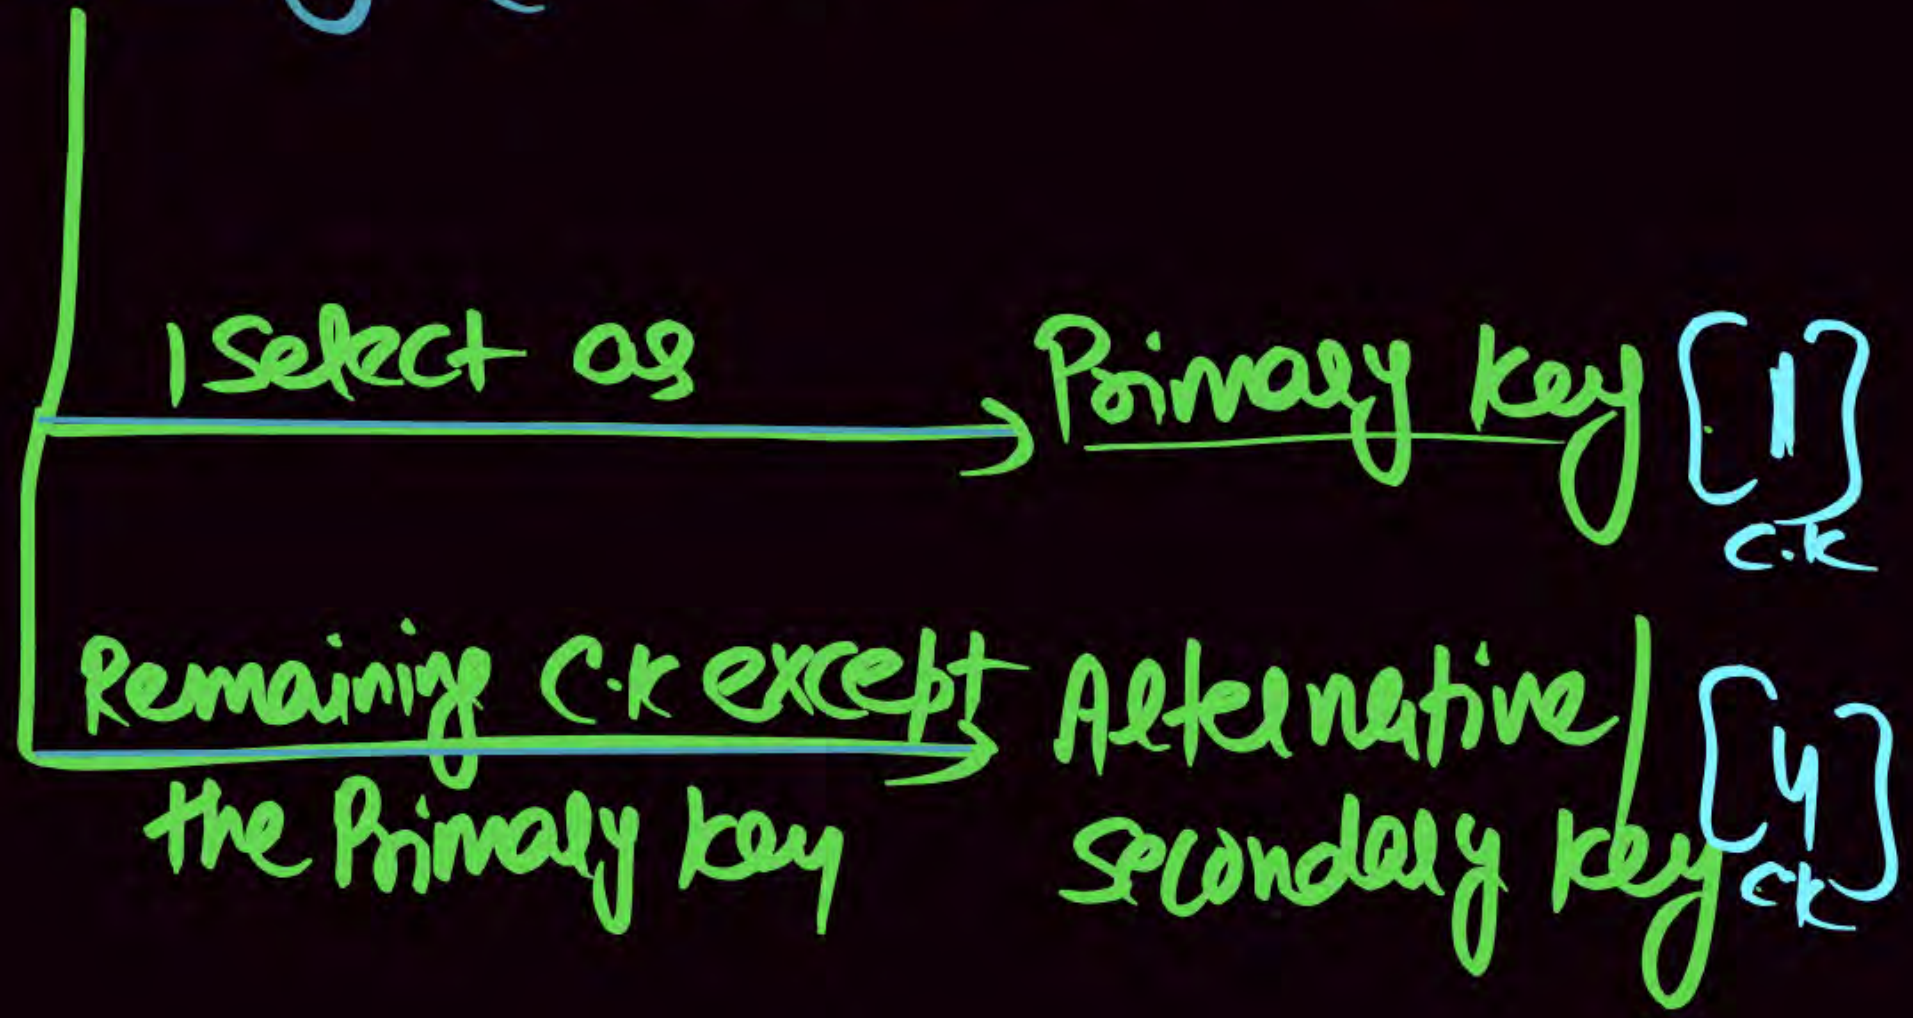 1 Select as
Primary key [1]
C.K
Remaining C.K except
the Primary key
Alternative /
secondary key
[4]
CK